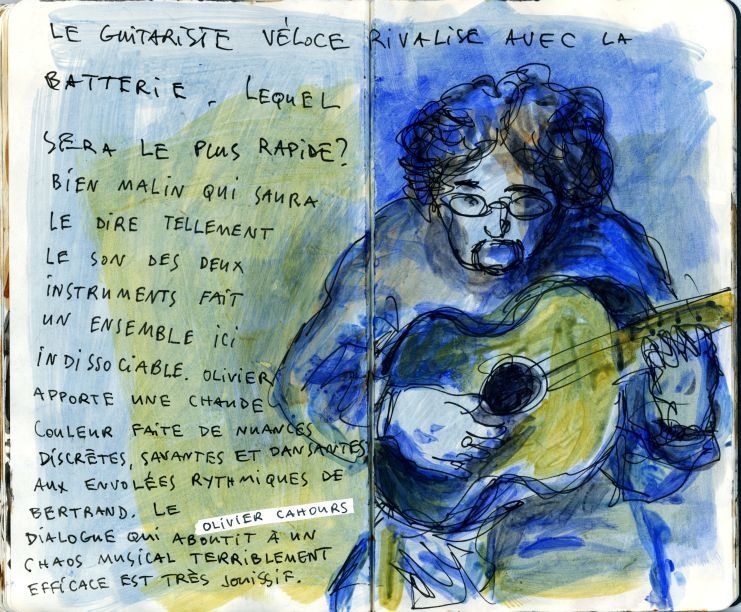 LE GUITARISTE VÉLOCE RIVALISE AVEC LA
BATTERIE. LEQUEL
SERA LE PLUS RAPIDE?
BIEN MALIN QUI SAURA
LE DIRE TELLEMENT
LE SON DES DEUX
INSTRUMENTS FAIT
UN ENSEMBLE ICI
INDISSOCIABLE. OLIVIER
APPORTE UNE CHAUDE
COULEUR FAITE DE NUANCES
DISCRÈTES, SAVANTES ET DANSANTES
AUX ENVOLÉES RYTHMIQUES DE
BERTRAND. LE
OLIVIER CAHOURS
DIALOGUE QUI ABOUTIT À UN
CHAOS MUSICAL TERRIBLEMENT
EFFICACE EST TRÈS JOUISSIF.